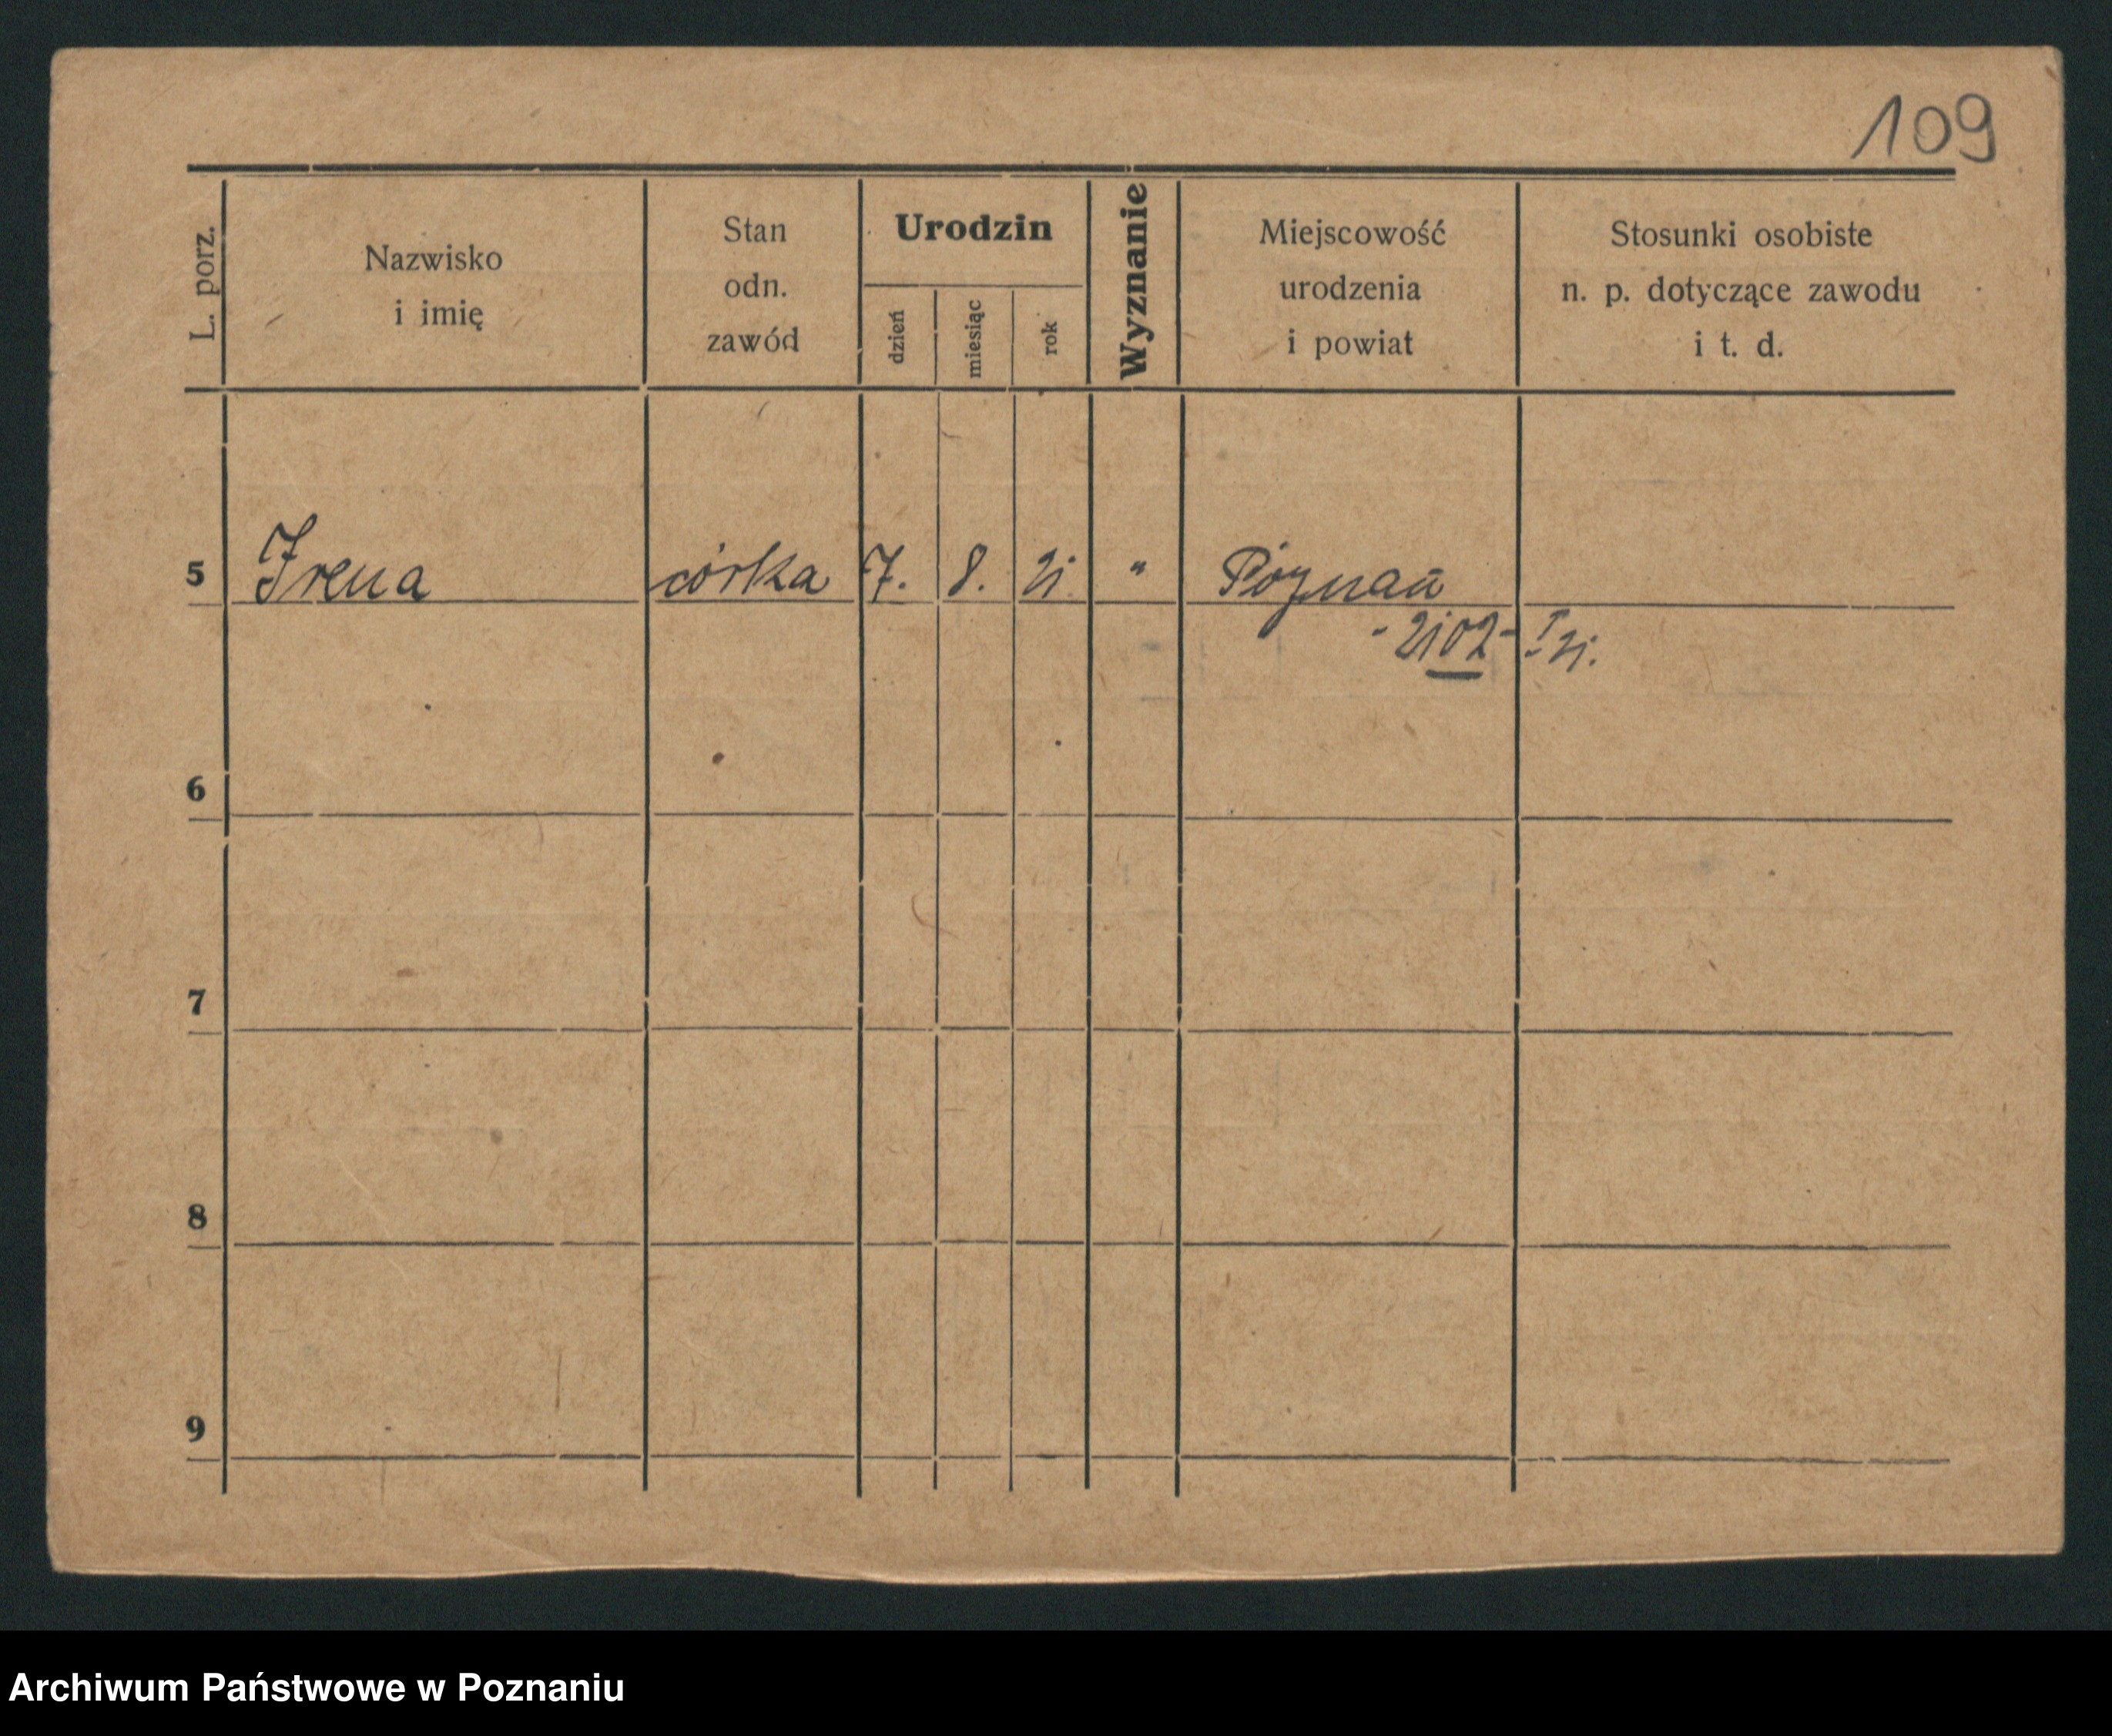 109
L. porz.
Nazwisko
i imię
Stan
odn.
zawód
Urodzin
dzień
miesiąc
rok
Wyznanie
Miejscowość
urodzenia
i powiat
Stosunki osobiste
n. p. dotyczące zawodu
i t. d.
5 Irena córka 7. 8. 21 " Poznań
- 2102 - I 21.
6
7
8
9
Archiwum Państwowe w Poznaniu